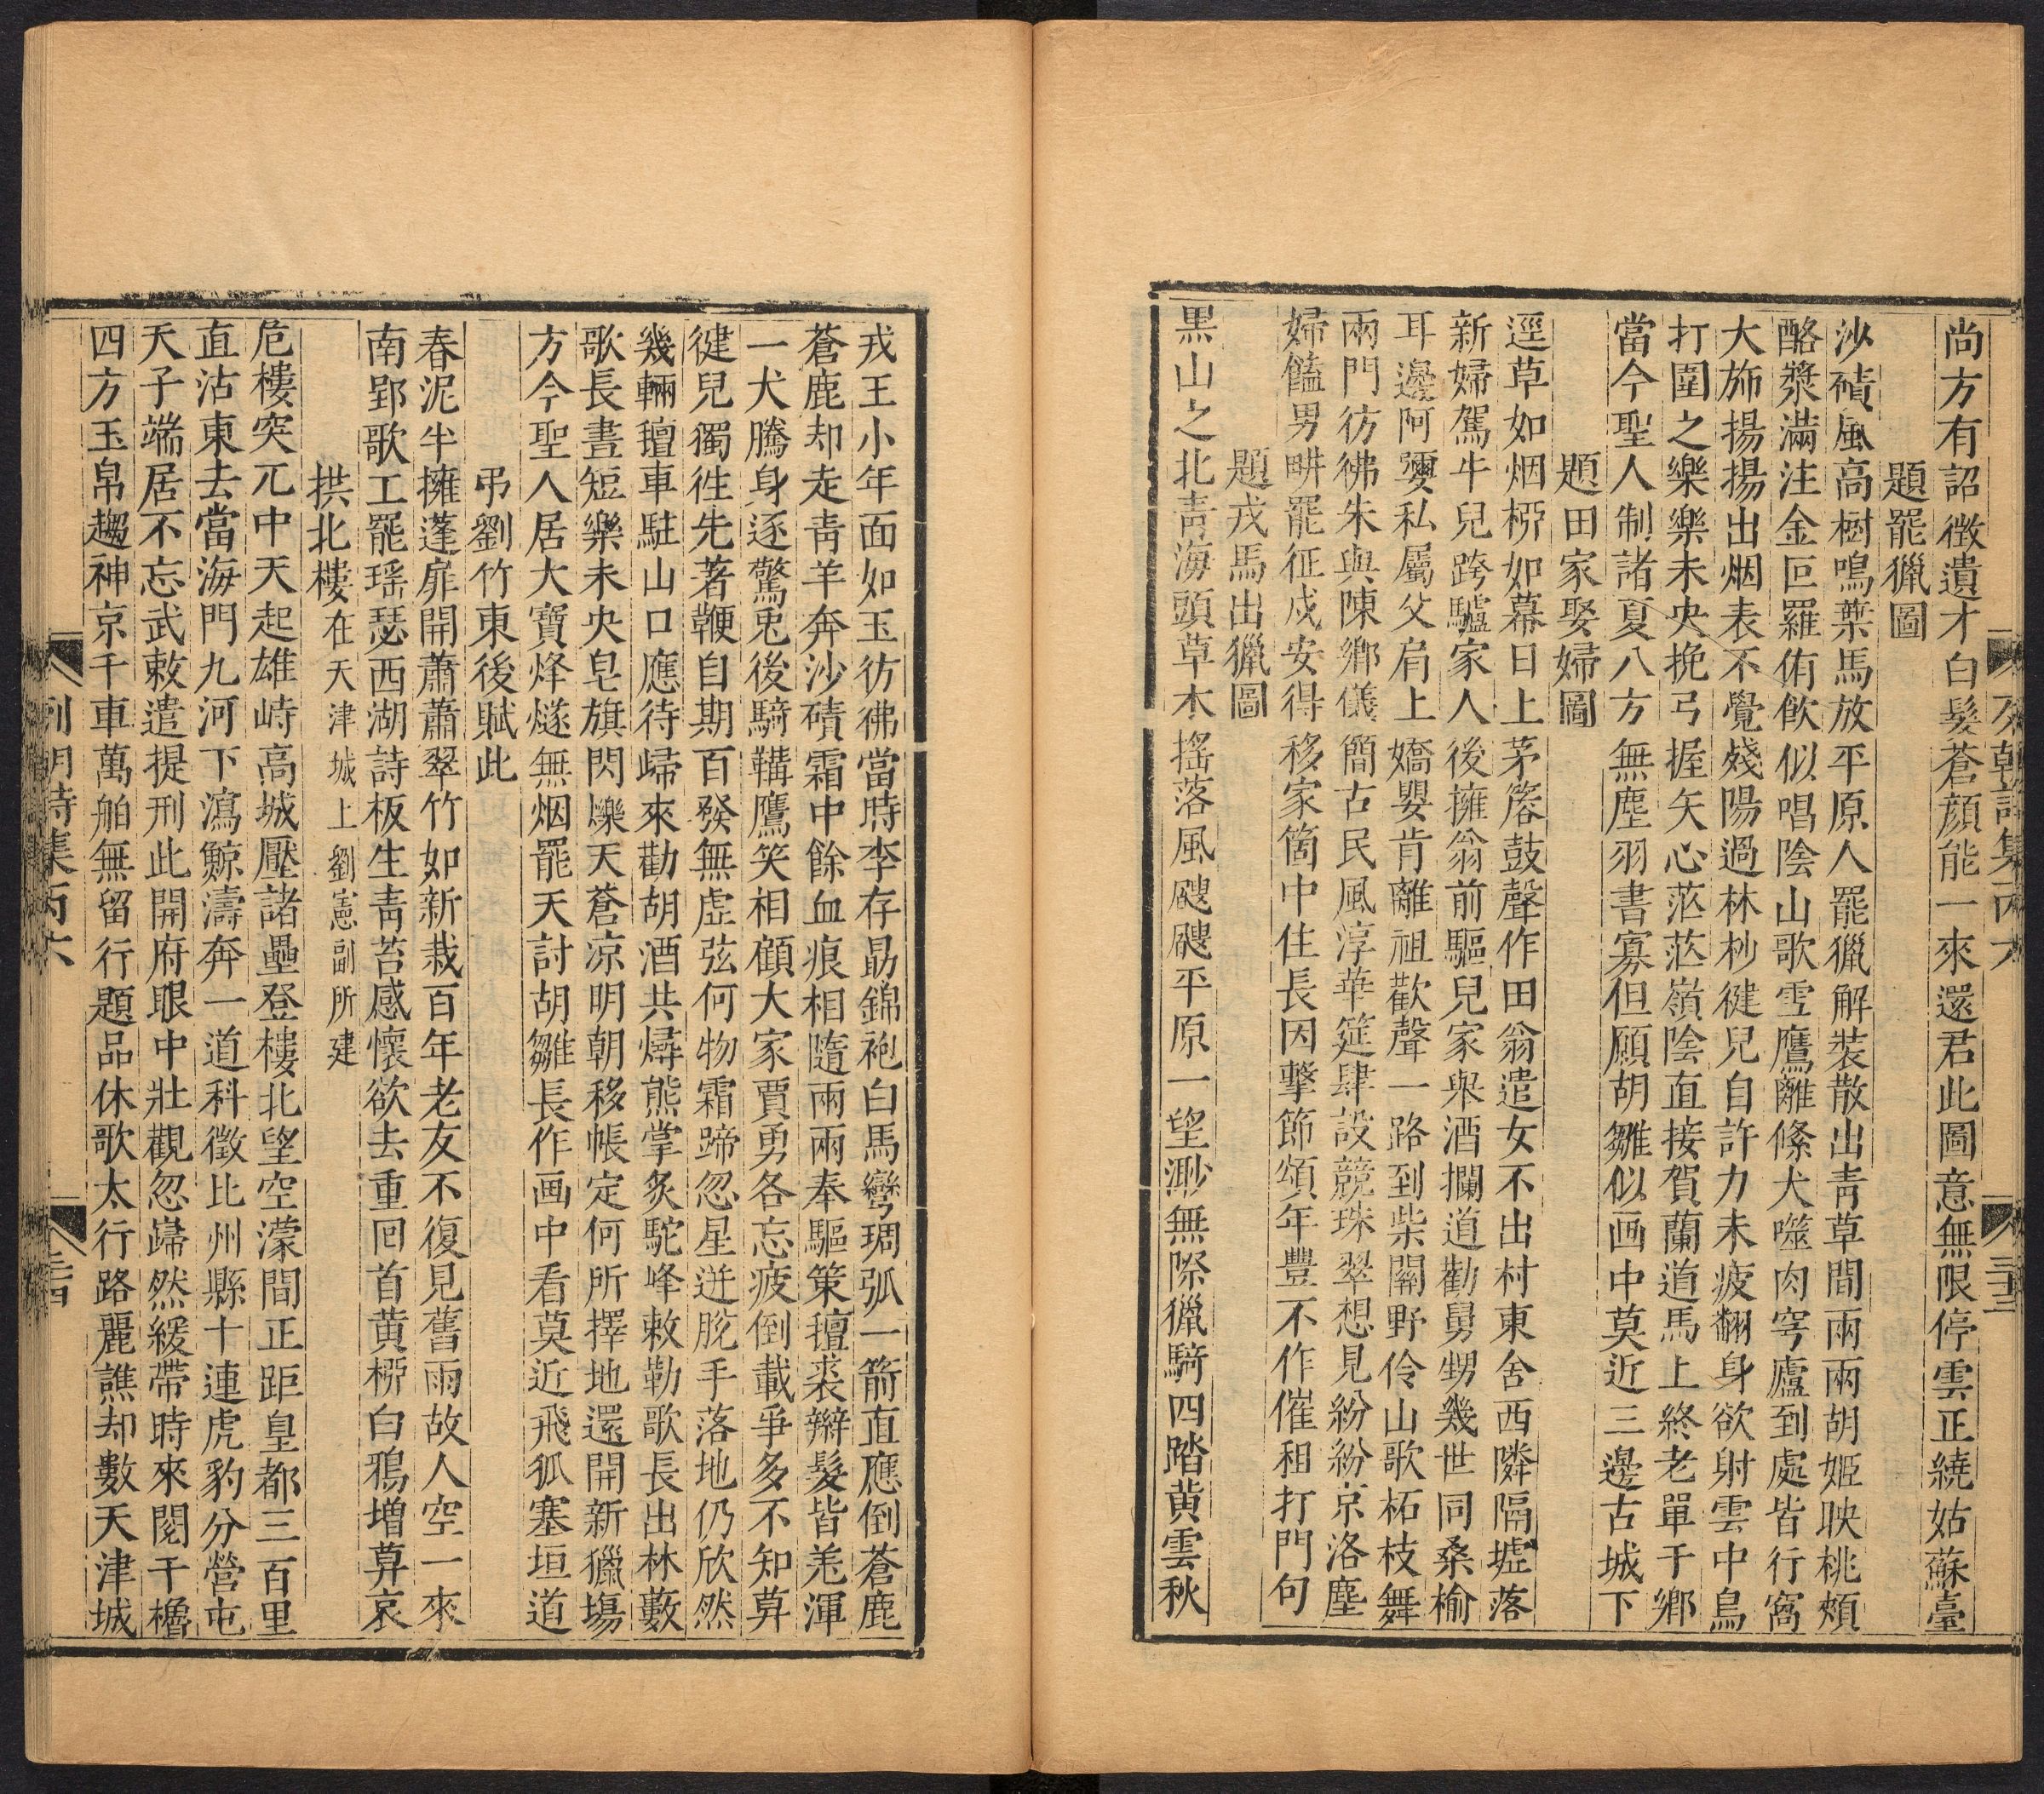 尚方有詔徵遺才白髮蒼顏能一來還君此圖意無限停雲正繞姑蘇臺
題罷獵圖
沙磧風高樹鳴葉馬放平原人罷獵解裝散出青草間兩兩胡姬映桃頰
酪漿滿注金叵羅侑飲似唱陰山歌雪鷹離絛犬噬肉穹廬到處皆行窩
大斾揚揚出烟表不覺殘陽過林杪健兒自許力未疲翻身欲射雲中鳥
打圍之樂樂未央挽弓握矢心茫茫嶺陰直接賀蘭道馬上終老單于鄉
當今聖人制諸夏八方無塵羽書寡但願胡雛似画中莫近三邊古城下
題田家娶婦圖
逕草如烟桺如幕日上茅簷鼓聲作田翁遣女不出村東舍西隣隔墟落
新婦駕牛兒跨驢家人後擁翁前驅兒家舁酒攔道勸舅甥幾世同桑榆
耳邊阿㜷私屬父肩上嬌嬰肯離祖歡聲一路到柴關野伶山歌柘枝舞
兩門彷彿朱與陳鄉儀簡古民風淳華筵肆設競珠翠想見紛紛京洛塵
婦饁男畊罷征戍安得移家箇中住長因擊節頌年豐不作催租打門句
題戎馬出獵圖
黑山之北青海頭草木搖落風颼颼平原一望渺無際獵騎四踏黃雲秋
戎王小年面如玉彷彿當時李存勗錦袍白馬彎琱弧一箭直應倒蒼鹿
蒼鹿却走青羊奔沙磧霜中餘血痕相隨兩兩奉驅策氊裘辮髮皆羌渾
一犬騰身逐驚兎後騎鞲鷹笑相顧大家賈勇各忘疲倒載爭多不知算
健兒獨徃先著鞭自期百發無虛弦何物霜蹄忽星迸脫手落地仍欣然
幾輛氊車駐山口應待歸來勸胡酒共燖熊掌炙駝峰敕勒歌長出林藪
歌長晝短樂未央皂旗閃爍天蒼凉明朝移帳定何所擇地還開新獵塲
方今聖人居大寶烽燧無烟罷天討胡雛長作画中看莫近飛狐塞垣道
弔劉竹東後賦此
春泥半擁蓬扉開蕭蕭翠竹如新栽百年老友不復見舊雨故人空一來
南郢歌工罷瑶瑟西湖詩板生青苔感懷欲去重回首黄桺白鴉增算哀
拱北樓在天津城上劉憲副所建
危樓突兀中天起雄峙高城壓諸壘登樓北望空濛間正距皇都三百里
直沽東去當海門九河下瀉鯨濤奔一道科徵比州縣十連虎豹分營屯
天子端居不忘武敕遣提刑此開府眼中壯觀忽巋然緩帶時來閱干櫓
四方玉帛趨神京千車萬舶無留行題品休歌太行路麗譙却數天津城
列朝詩集丙六
三十三
列朝詩集丙六
三十四